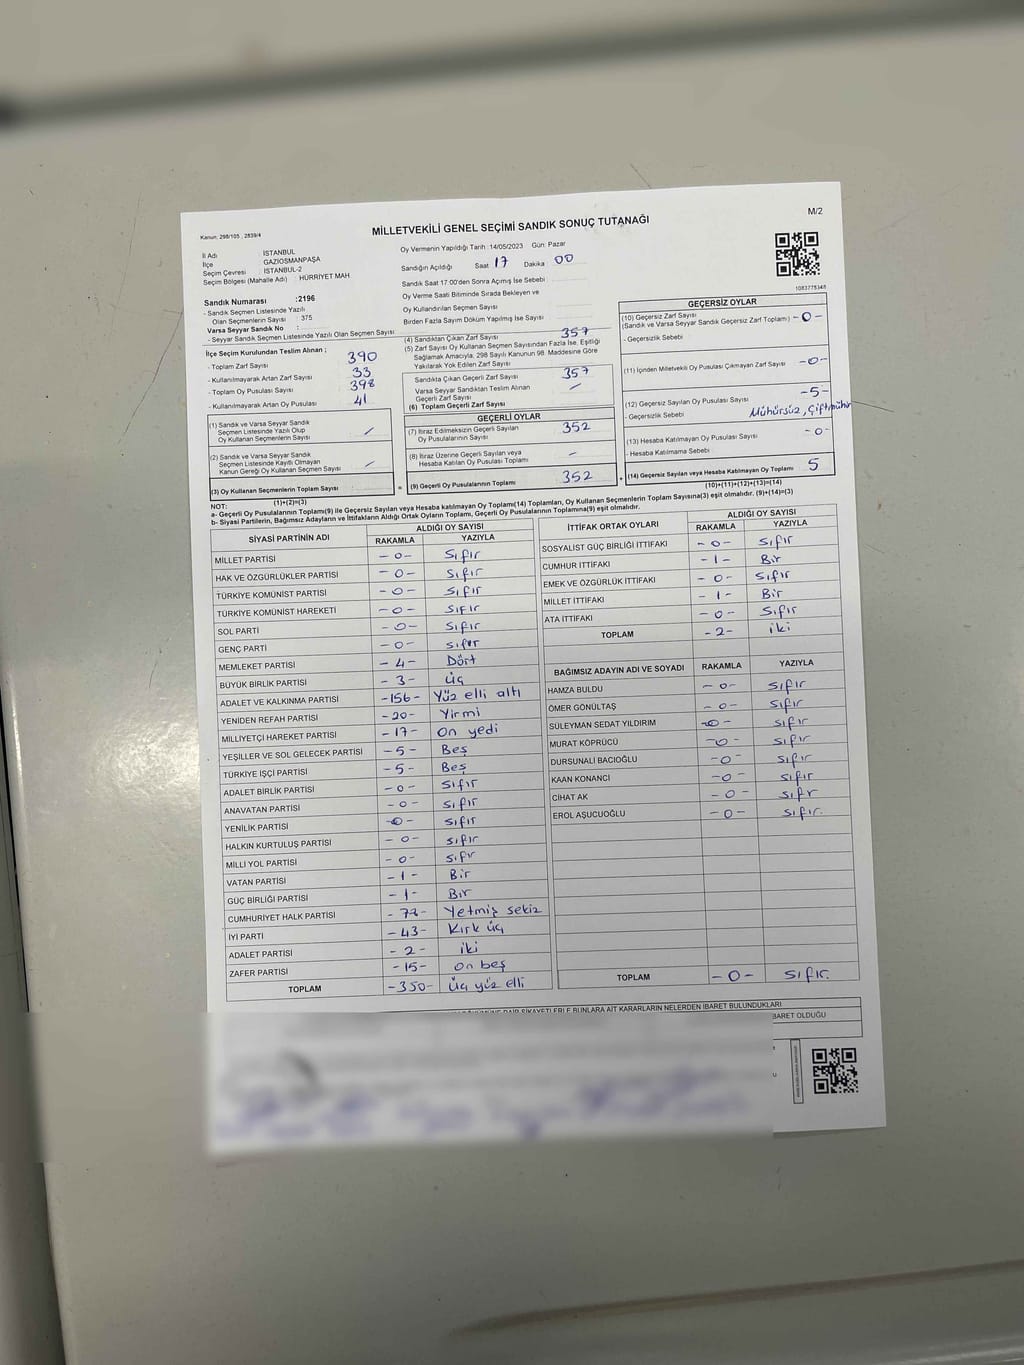 Kanun: 298/105, 2839/4
MİLLETVEKİLİ GENEL SEÇİMİ SANDIK SONUÇ TUTANAĞI
M/2
İl Adı İSTANBUL
İlçe GAZİOSMANPAŞA
Seçim Çevresi İSTANBUL-2
Seçim Bölgesi (Mahalle Adı) : HÜRRİYET MAH
Oy Vermenin Yapıldığı Tarih : 14/05/2023 Gün: Pazar
Sandığın Açıldığı Saat 17 Dakika 00
Sandık Saat 17:00'den Sonra Açılmış İse Sebebi :
Oy Verme Saati Bitiminde Sırada Bekleyen ve
Oy Kullandırılan Seçmen Sayısı
Birden Fazla Sayım Döküm Yapılmış İse Sayısı :
1083775348
Sandık Numarası :2196
- Sandık Seçmen Listesinde Yazılı
Olan Seçmenlerin Sayısı : 375
Varsa Seyyar Sandık No :
- Seyyar Sandık Seçmen Listesinde Yazılı Olan Seçmen Sayısı :
İlçe Seçim Kurulundan Teslim Alınan ;
- Toplam Zarf Sayısı 390
- Kullanılmayarak Artan Zarf Sayısı 33
- Toplam Oy Pusulası Sayısı 398
- Kullanılmayarak Artan Oy Pusulası 41
(1) Sandık ve Varsa Seyyar Sandık
Seçmen Listesinde Yazılı Olup
Oy Kullanan Seçmenlerin Sayısı /
(2) Sandık ve Varsa Seyyar Sandık
Seçmen Listesinde Kayıtlı Olmayan
Kanun Gereği Oy Kullanan Seçmen Sayısı /
(3) Oy Kullanan Seçmenlerin Toplam Sayısı
(1)+(2)=(3)
(4) Sandıktan Çıkan Zarf Sayısı 357
(5) Zarf Sayısı Oy Kullanan Seçmen Sayısından Fazla İse, Eşitliği
Sağlamak Amacıyla, 298 Sayılı Kanunun 98. Maddesine Göre
Yakılarak Yok Edilen Zarf Sayısı
Sandıkta Çıkan Geçerli Zarf Sayısı 357
Varsa Seyyar Sandıktan Teslim Alınan
Geçerli Zarf Sayısı /
(6) Toplam Geçerli Zarf Sayısı
GEÇERLİ OYLAR
(7) İtiraz Edilmeksizin Geçerli Sayılan
Oy Pusulalarının Sayısı 352
(8) İtiraz Üzerine Geçerli Sayılan veya
Hesaba Katılan Oy Pusulası Toplamı -
= (9) Geçerli Oy Pusulalarının Toplamı 352
GEÇERSİZ OYLAR
(10) Geçersiz Zarf Sayısı
(Sandık ve Varsa Seyyar Sandık Geçersiz Zarf Toplamı) -0-
- Geçersizlik Sebebi
(11) İçinden Milletvekili Oy Pusulası Çıkmayan Zarf Sayısı -0-
(12) Geçersiz Sayılan Oy Pusulası Sayısı -5-
- Geçersizlik Sebebi Mühürsüz, Çift mühür
(13) Hesaba Katılmayan Oy Pusulası Sayısı -0-
- Hesaba Katılmama Sebebi
+ (14) Geçersiz Sayılan veya Hesaba Katılmayan Oy Toplamı 5
(10)+(11)+(12)+(13)=(14)
NOT:
a- Geçerli Oy Pusulalarının Toplamı(9) ile Geçersiz Sayılan veya Hesaba katılmayan Oy Toplam(14) Toplamları, Oy Kullanan Seçmenlerin Toplam Sayısına(3) eşit olmalıdır. (9)+(14)=(3)
b- Siyasi Partilerin, Bağımsız Adayların ve İttifakların Aldığı Ortak Oyların Toplamı, Geçerli Oy Pusulalarının Toplamına(9) eşit olmalıdır.
SİYASİ PARTİNİN ADI ALDIĞI OY SAYISI
RAKAMLA YAZIYLA
MİLLET PARTİSİ -0- Sıfır
HAK VE ÖZGÜRLÜKLER PARTİSİ -0- Sıfır
TÜRKİYE KOMÜNİST PARTİSİ -0- Sıfır
TÜRKİYE KOMÜNİST HAREKETİ -0- Sıfır
SOL PARTİ -0- Sıfır
GENÇ PARTİ -0- sıfır
MEMLEKET PARTİSİ -4- Dört
BÜYÜK BİRLİK PARTİSİ -3- üç
ADALET VE KALKINMA PARTİSİ -156- Yüz elli altı
YENİDEN REFAH PARTİSİ -20- Yirmi
MİLLİYETÇİ HAREKET PARTİSİ -17- On yedi
YEŞİLLER VE SOL GELECEK PARTİSİ -5- Beş
TÜRKİYE İŞÇİ PARTİSİ -5- Beş
ADALET BİRLİK PARTİSİ -0- Sıfır
ANAVATAN PARTİSİ -0- Sıfır
YENİLİK PARTİSİ -0- Sıfır
HALKIN KURTULUŞ PARTİSİ -0- sıfır
MİLLİ YOL PARTİSİ -0- sıfır
VATAN PARTİSİ -1- Bir
GÜÇ BİRLİĞİ PARTİSİ -1- Bir
CUMHURİYET HALK PARTİSİ -78- Yetmiş sekiz
İYİ PARTİ -43- Kırk üç
ADALET PARTİSİ -2- iki
ZAFER PARTİSİ -15- on beş
TOPLAM -350- üç yüz elli
İTTİFAK ORTAK OYLARI ALDIĞI OY SAYISI
RAKAMLA YAZIYLA
SOSYALİST GÜÇ BİRLİĞİ İTTİFAKI -0- Sıfır
CUMHUR İTTİFAKI -1- Bir
EMEK VE ÖZGÜRLÜK İTTİFAKI -0- Sıfır
MİLLET İTTİFAKI -1- Bir
ATA İTTİFAKI -0- Sıfır
TOPLAM -2- iki
BAĞIMSIZ ADAYIN ADI VE SOYADI RAKAMLA YAZIYLA
HAMZA BULDU -0- sıfır
ÖMER GÖNÜLTAŞ -0- sıfır
SÜLEYMAN SEDAT YILDIRIM -0- sıfır
MURAT KÖPRÜCÜ -0- sıfır
DURSUNALİ BACIOĞLU -0- sıfır
KAAN KONANCI -0- sıfır
CİHAT AK -0- sıfır
EROL AŞUCUOĞLU -0- sıfır.
TOPLAM -0- sıfır.
ŞİKAYETLERLE BUNLARA AİT KARARLARIN NELERDEN İBARET BULUNDUKLARI
İBARET OLDUĞU